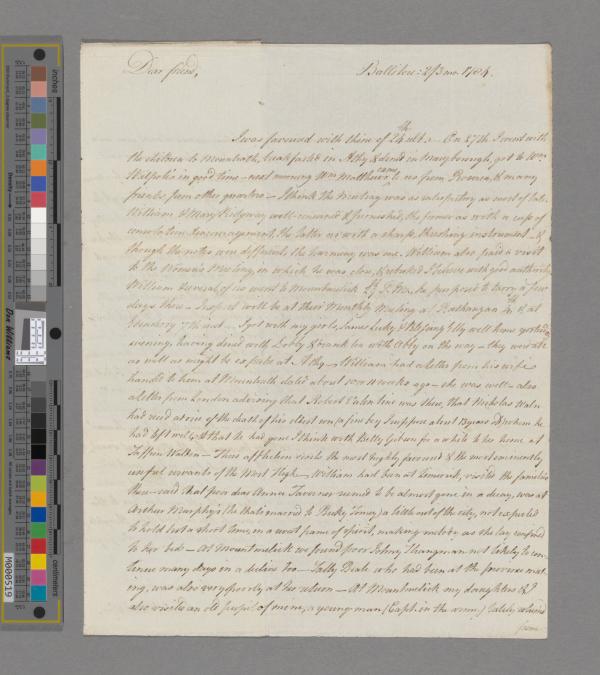 Dear friend,
Ballitore: 2/3mo. 1784.
I was favoured with thine of 24th ult.: On 27th I went with
the children to Mountrath, breakfasted in Athy & dined in Maryborough, got to Wm.
in good time — next morning Wm Matthews came to us from & many
friends from other quarters — I think the meeting was as satisfactory as most of late
William & Mary Ridgway well concerned & furnished, the former as with a cup of
consolation & encouragement, the latter as with a sharp, thrashing instrument — &
though the notes were different, the harmony was one. William also paid a visit
to the Women's Meeting, in which he was close, & I believe with good authority
William & several of us went to Mountmelick he purposed to tarry a few
days there — I expect will be at their Monthly Meeting at Rathangan 4th, & at
Edenderry 7th inst — I got with my girls, & well home yesterday
evening, having dined with & Frank & with Abby on the way — they were all
as well as might be expected at Athy — William had a letter from his wife
handed to him at Mountrath dated about 10 or 11 weeks ago — she was well — also
a letter from London advising that Robert Valentine was there, that Nicholas Waln
had received advice of the death of his eldest son (a fine boy I suppose about 13 years old) whom he
had left well, & that he had gone I think with Betty Gibson for a while to her home at
Saffron Walden — Thus affliction visits the most highly favoured & the most eminently
useful servants of the Most High — William had been at Limerick, visited the families
there — said that poor dear Anna Taverner seemed to be almost gone in a decay, was at
Arthur Murphy's (he that's married to Becky ) a little out of the city, not expected
to hold but a short time, in a sweet frame of spirit, making melody as she lay confined
to her bed — At Mountmelick we found poor Johnny Strangman not likely to con-
tinue many days in a too — Sally Beale who had been at the province meet-
ing, was also very poorly, at her return — At Mountmelick my daughters & I
also visited an old pupil of mine, a young man (Capt. in the army) lately returned
from
inches
centimeters
Don Williams
M000519